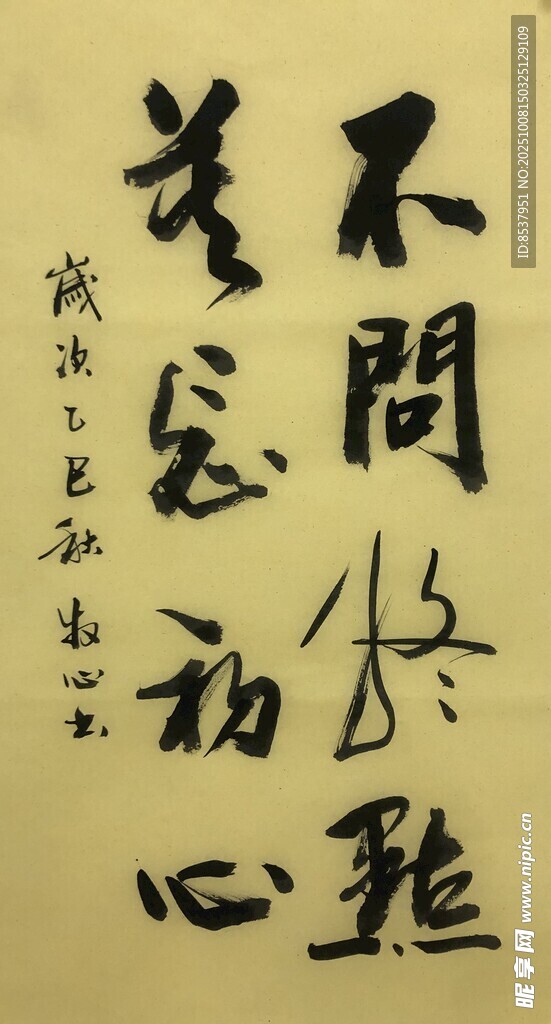 不問終點
莫忘初心
歲次乙巳秋 牧心书
ID:8537951 NO:20251008150325129109
昵享网 www.nipic.cn